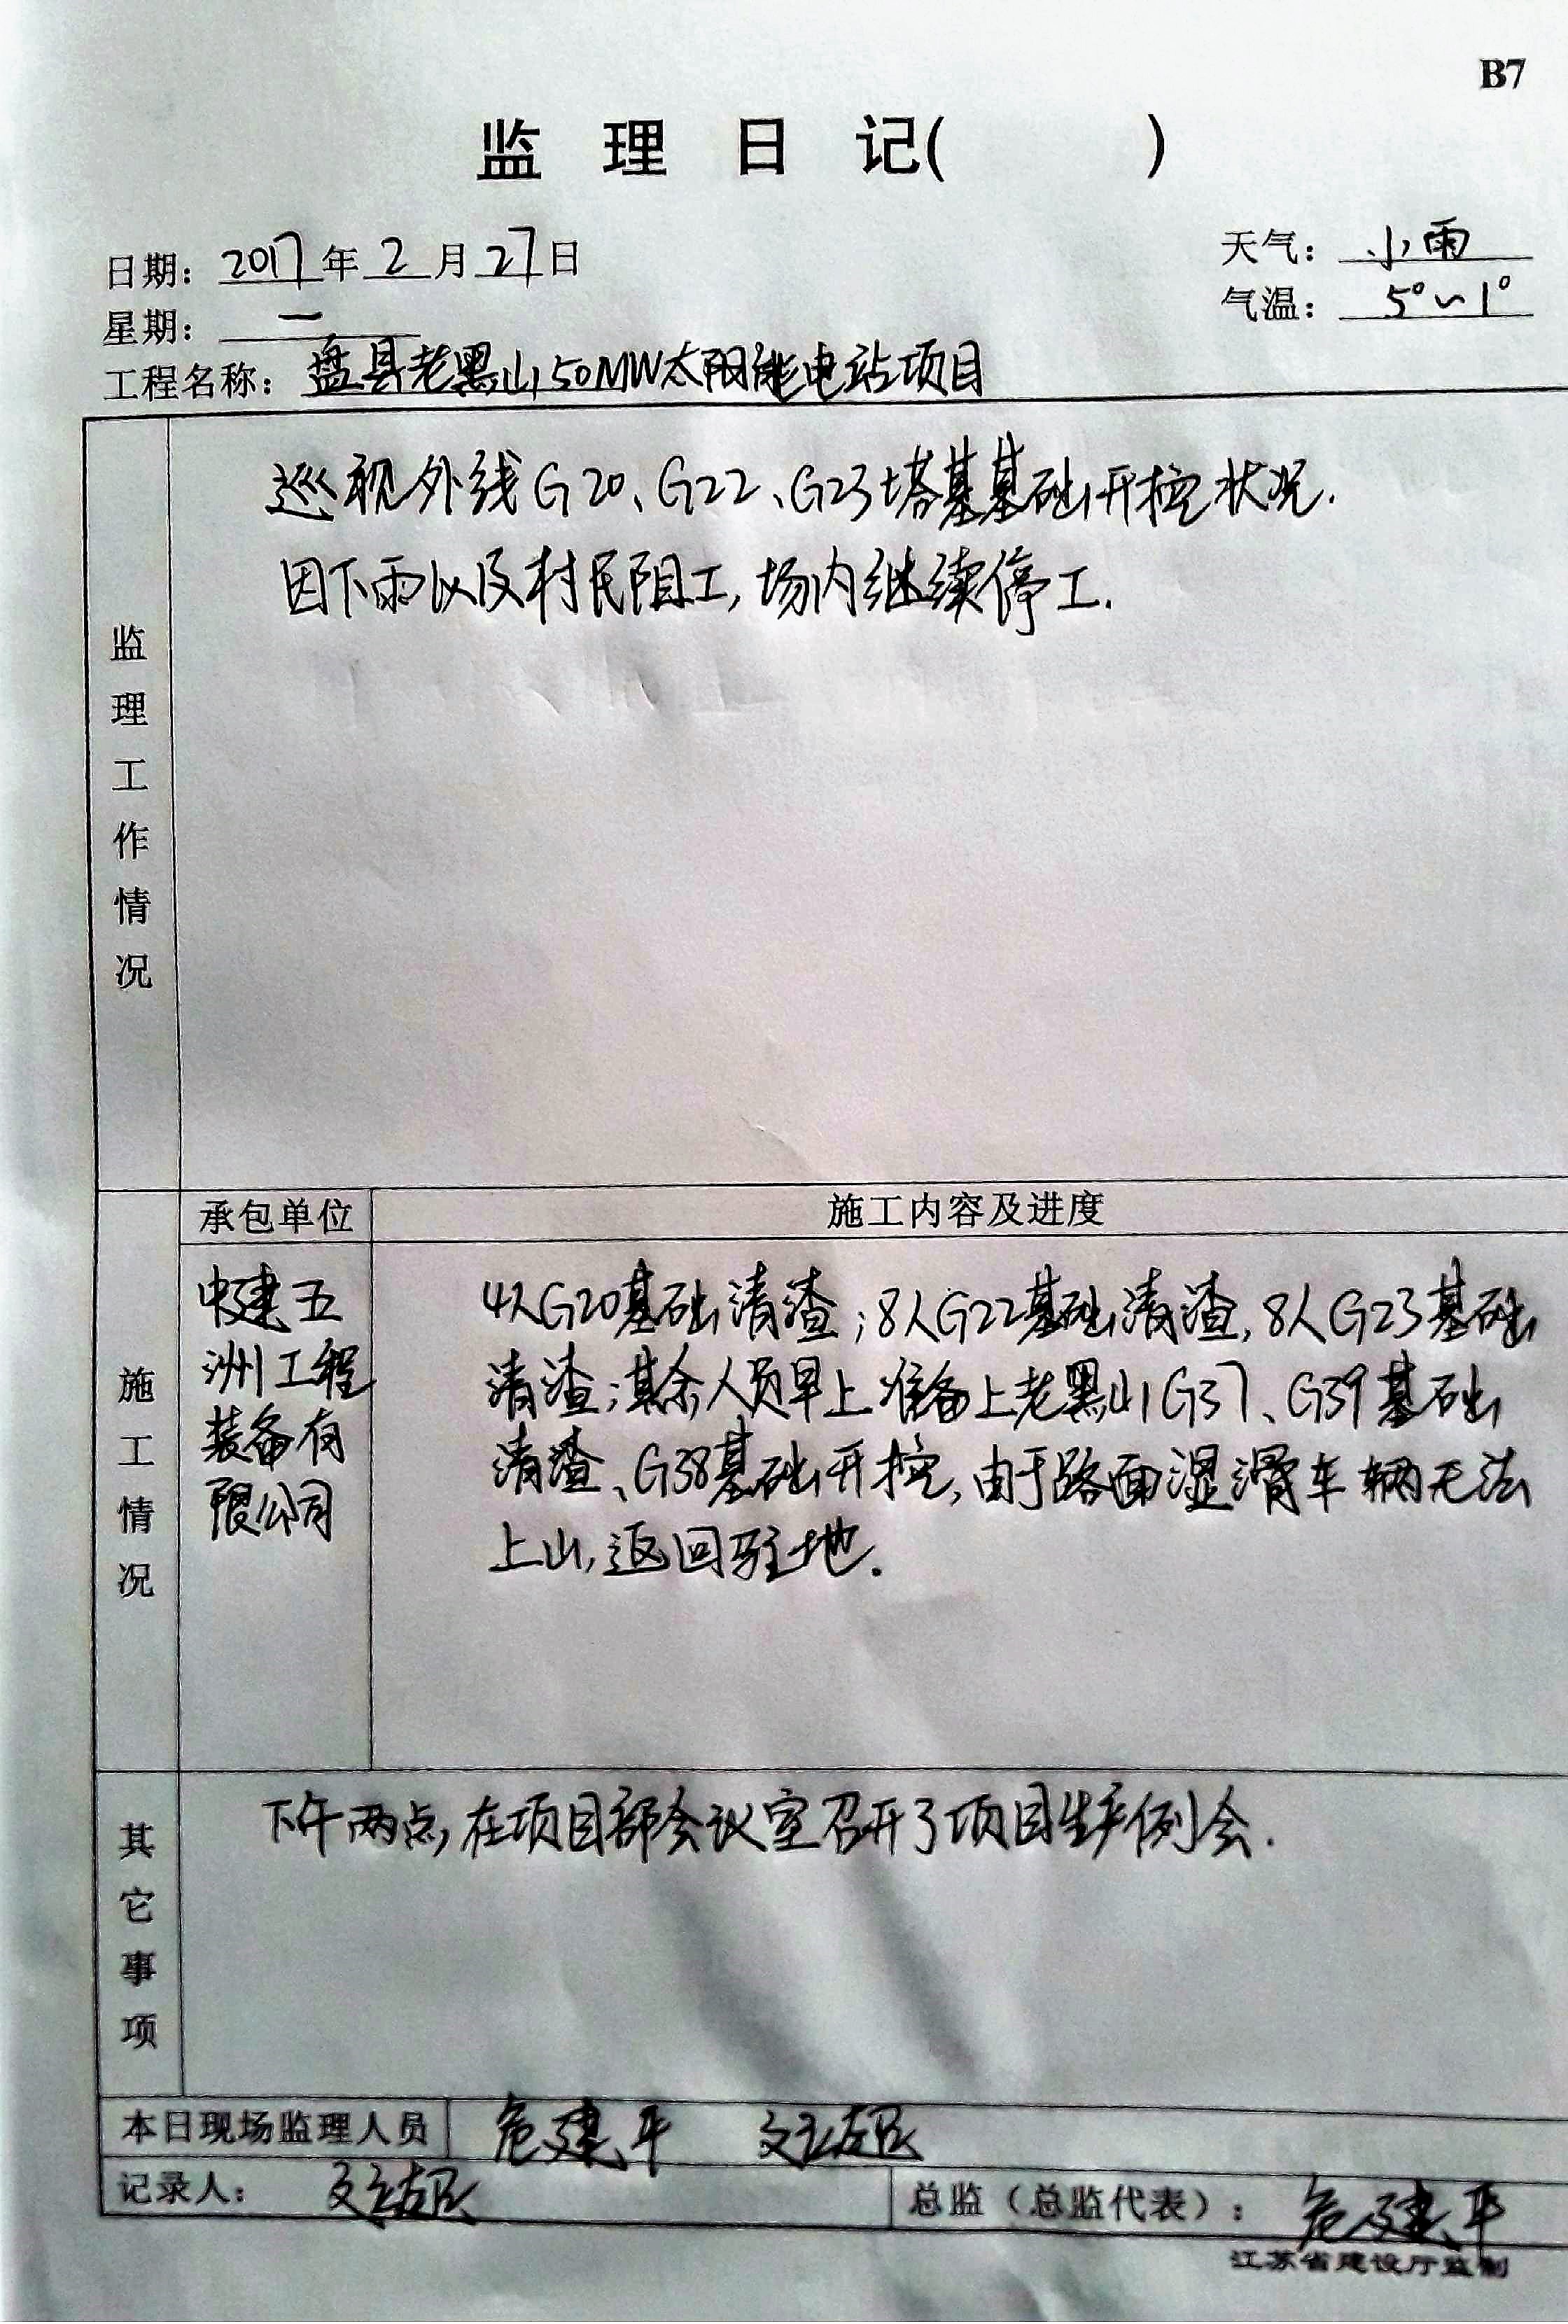 B7
监理日记(          )
日期：2017年2月27日
天气：小雨
星期：一
气温：5°~1°
工程名称：盘县老黑山50MW太阳能电站项目
监理工作情况
巡视外线G20、G22、G23塔基基础开挖状况.
因下雨以及村民阻工,场内继续停工.
施工情况
承包单位
施工内容及进度
中建五
洲工程
装备有
限公司
4人G20基础清渣;8人G22基础清渣,8人G23基础
清渣;其余人员早上准备上老黑山G37、G39基础
清渣、G38基础开挖,由于路面湿滑车辆无法
上山,返回驻地.
其它事项
下午两点,在项目部会议室召开了项目生产例会.
本日现场监理人员 危建平
记录人：
总监（总监代表）：危建平
江苏省建设厅监制